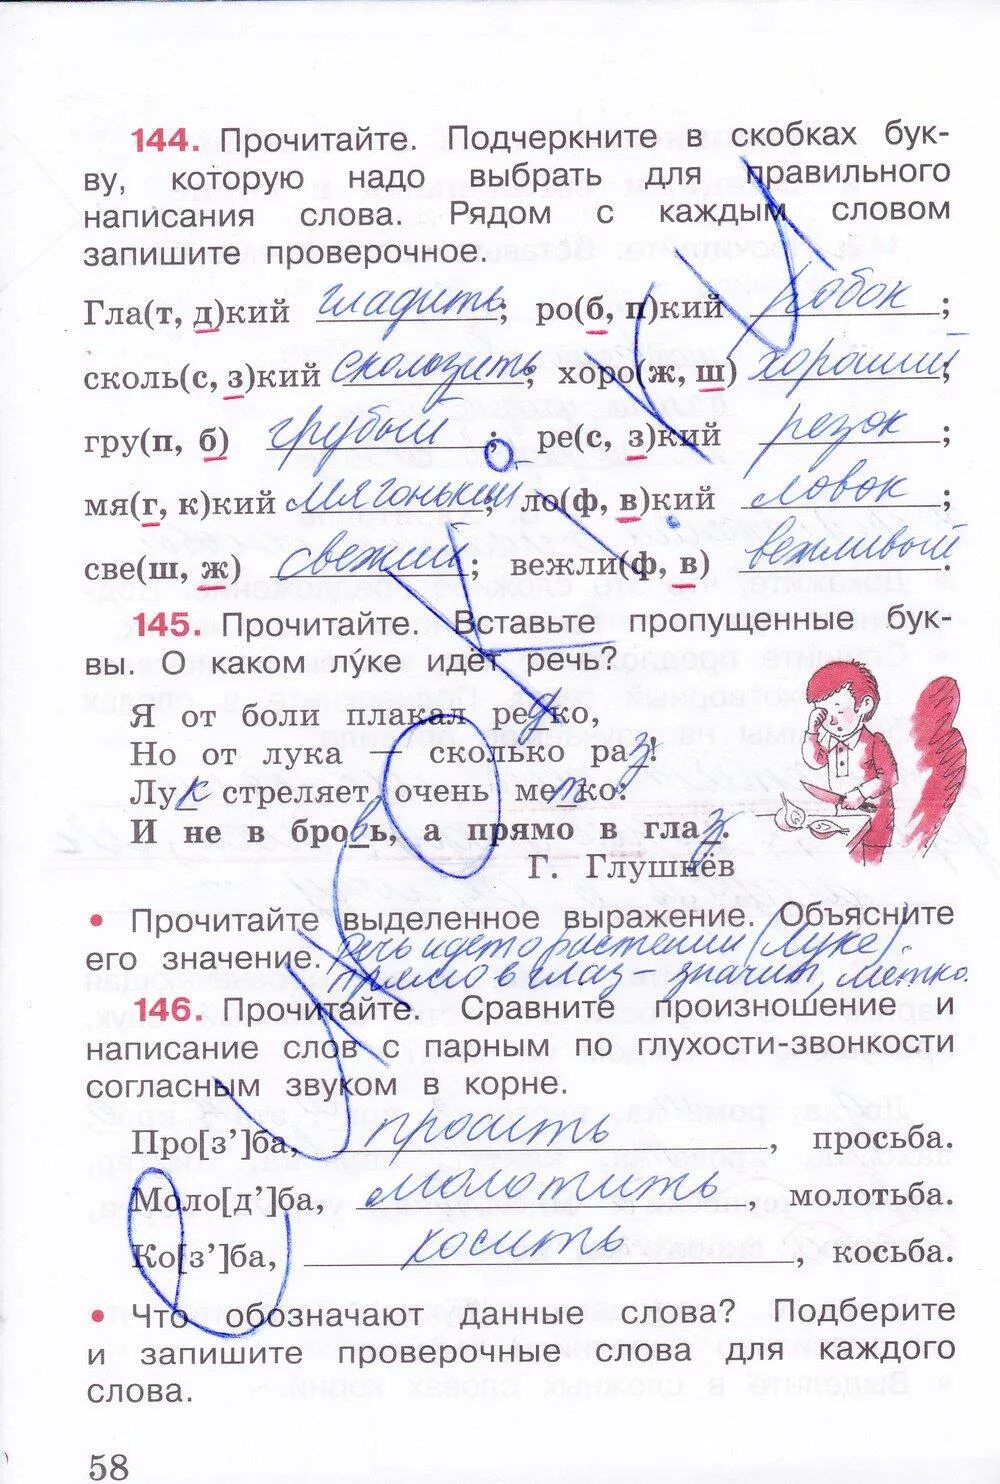 144. Прочитайте. Подчеркните в скобках бук-
ву, которую надо выбрать для правильного
написания слова. Рядом с каждым словом
запишите проверочное.
Гла(т, д)кий гладить; ро(б, п)кий робок;
сколь(с, з)кий сколозить; хоро(ж, ш) хороший;
гру(п, б) грубый; ре(с, з)кий резок;
мя(г, к)кий мягонький; ло(ф, в)кий ловок;
све(ш, ж) свежий; вежли(ф, в) вежливый.
145. Прочитайте. Вставьте пропущенные бук-
вы. О каком лу́ке идёт речь?
Я от боли плакал редко,
Но от лука — сколько раз!
Лук стреляет очень метко:
И не в бровь, а прямо в глаз.
Г. Глушнёв
• Прочитайте выделенное выражение. Объясните
его значение. Речь идет о растении (Луке).
Прямо в глаз – значит, метко.
146. Прочитайте. Сравните произношение и
написание слов с парным по глухости-звонкости
согласным звуком в корне.
Про[з’]ба, просить, просьба.
Моло[д’]ба, молотить, молотьба.
Ко[з’]ба, косить, косьба.
• Что обозначают данные слова? Подберите
и запишите проверочные слова для каждого
слова.
58